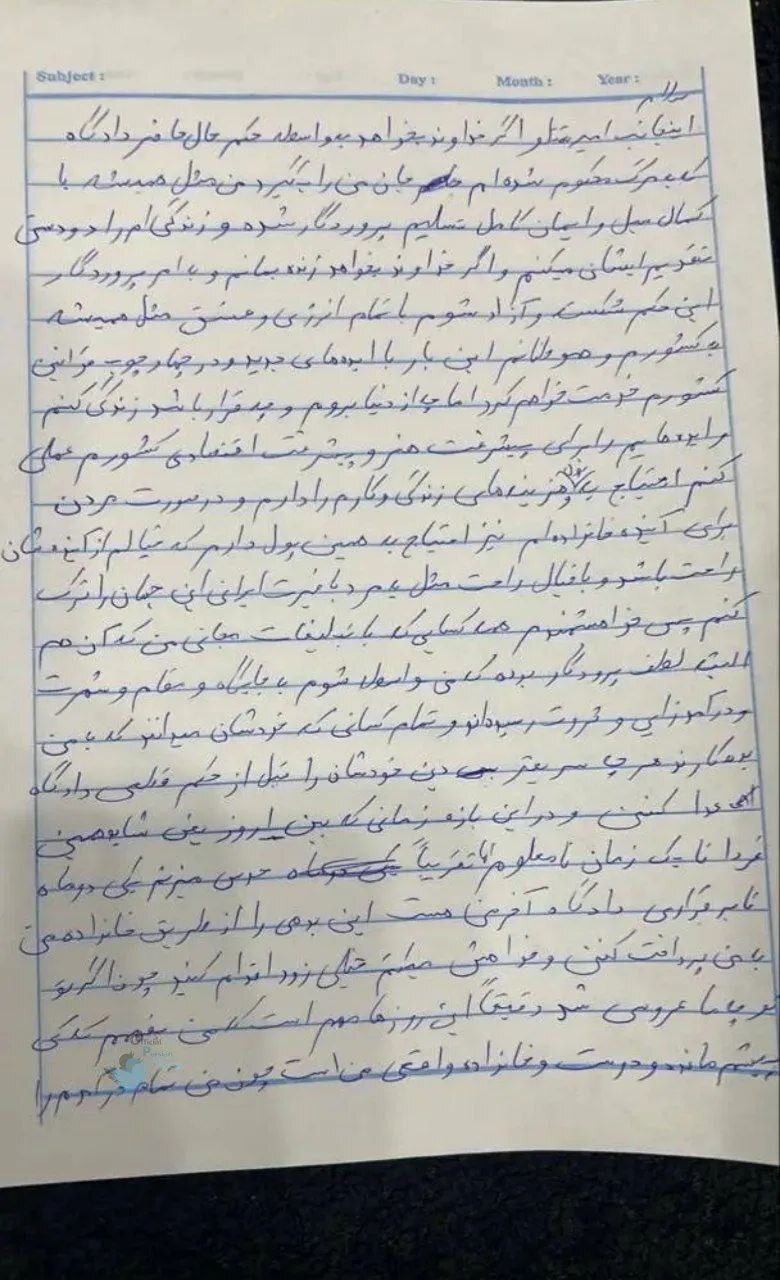 Subject : Day : Month : Year :
سلام
اینجانب امیر تتلو اگر خداوند بخواهد بواسطه حکم حال حاضر دادگاه
که به مرگ محکوم شده ام جان من را بگیرد من مثل همیشه با
کمال میل و ایمان کامل تسلیم پروردگار شده و زندگی ام را دودستی
تقدیم ایشان میکنم و اگر خداوند بخواهد زنده بمانم و با امر پروردگار
این حکم شکست و آزاد شوم با تمام انرژی و عشق مثل همیشه
به کشورم و هوطنانم این بار با ایده های جدید و در چهارچوب قوانین
کشورم خدمت خواهم کرد اما چه از دنیا بروم و چه قرار باشد زندگی کنم
و ایده هایم را برای پیشرفت هنر و پیشرفت اقتصادی کشورم عملی
کنم احتیاج به پول هزینه های زندگی و کارم را دارم و در صورت مردن
برای آینده خانواده ام نیز احتیاج به همین پول دارم که خیالم از آینده شان
راحت باشد و با خیال راحت مثل یه مرد با غیرت ایرانی این جهان را ترک
کنم پس خواهشمندم همه کسایی که با تبلیغات مجانی من که آن هم
البته لطف پروردگار بوده که من واسطه شوم به جایگاه و مقام و شهرت
و درآمدزایی و ثروت رسیداند و تمام کسانی که خودشان میدانند که به من
بدهکارند هر چه سریعتر دین خودشان را قبل از حکم قطعی دادگاه
ادا کنند و در این بازه زمانی که بین امروز یعنی شاید همین
فردا تا یک زمان نامعلوم اما تقریباً حدس میزنم یکی دو ماه
تا برقراری دادگاه آخر من هست این بدهی را از طریق خانواده من
به من پرداخت کنند و خواهش میکنم خیلی زود اقدام کنید چون اگر تو
کوچه ما عروسی شد دقیقاً این روزها مهم است که من بفهمم که کی
پیشم مانده و دوست و خانواده واقعی من است چون من تمام درآمدم را
Official
Persian